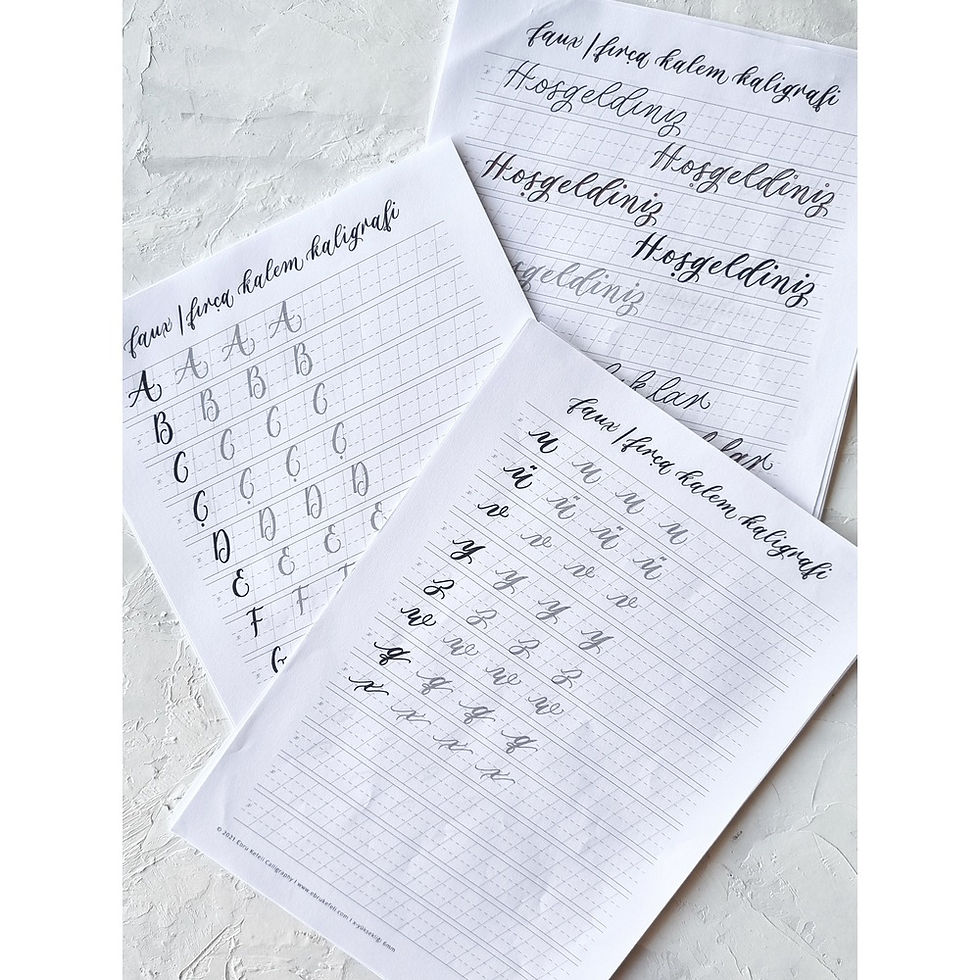 faux | fırça kalem kaligrafi
Hosgeldınız
Hoşgeldiniz
Hoşgeldiniz
Hoşgeldiniz
faux | fırça kalem kaligrafi
A A A A
B B B B
C C C C
Ç Ç Ç Ç
D D D D
E E E E
F F
G
faux | fırça kalem kaligrafi
u u u u
ü ü ü ü
v v v v
y y y y
z z z z
w w w w
q q q q
x x x x
© 2021 Ebru Kefeli Calligraphy | www.ebrukefeli.com | x-yüksekliği: 6mm